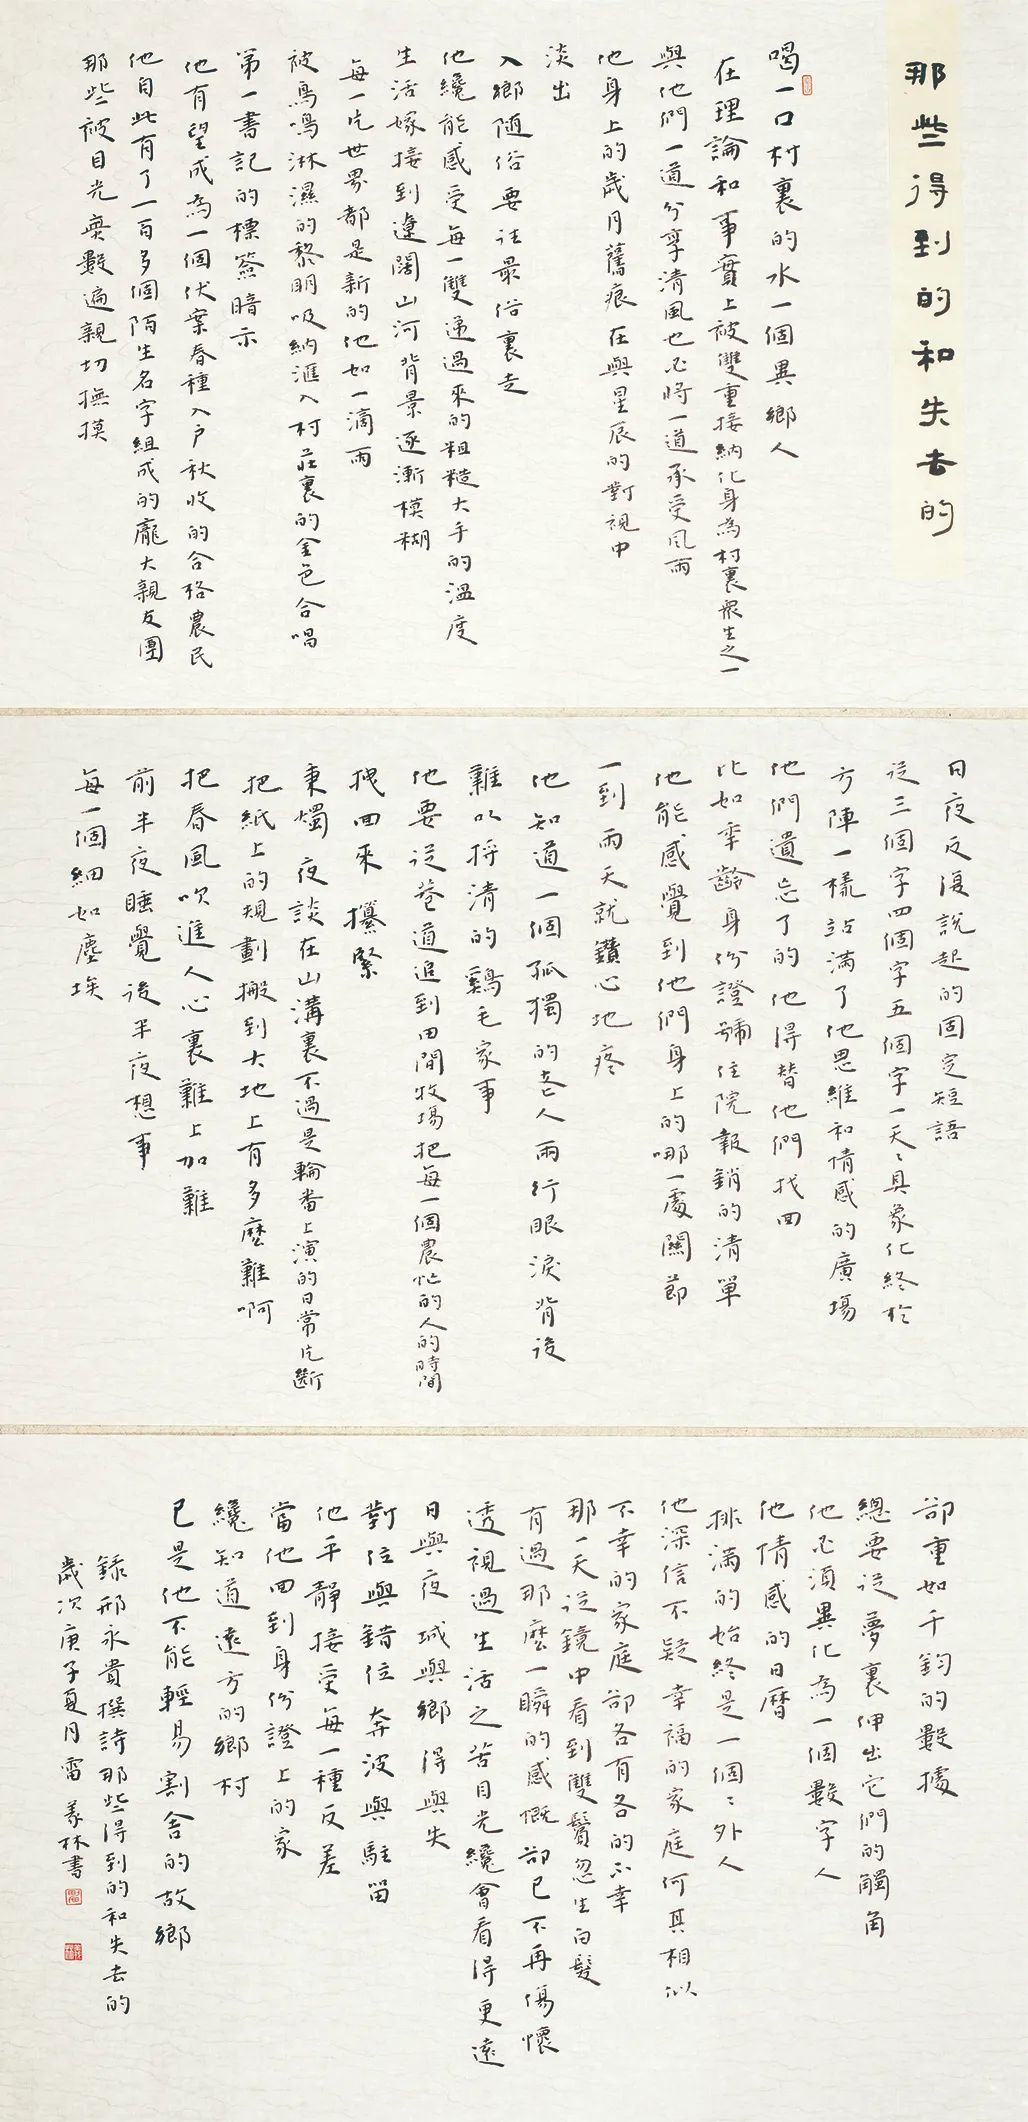 那些得到的和失去的
喝一口村裏的水一個異鄉人
在理論和事實上被雙重接納化身為村裏衆生之一
與他們一道分享清風也必將一道承受風雨
他身上的歲月舊痕在與星辰的對視中
淡出
入鄉随俗要往最俗裏走
他纔能感受每一雙遞過來的粗糙大手的溫度
生活嫁接到遼闊山河背景逐漸模糊
每一片世界都是新的他如一滴雨
被鳥鳴淋濕的黎明吸納滙入村莊裏的金色合唱
第一書記的標簽暗示
他有望成為一個伏案春種入户秋收的合格農民
他自此有了一百多個陌生名字組成的龐大親友團
那些被目光無數遍親切撫摸
日夜反復說起的固定短語
從三個字四個字五個字一天天具象化終於
方陣一樣站滿了他思維和情感的廣場
他們遺忘了的他得替他們找回
比如年齡身份證號住院報銷的清單
他能感覺到他們身上的哪一處關節
一到雨天就鑽心地疼
他知道一個孤獨的老人兩行眼淚背後
難以捋清的鷄毛家事
他要從巷道追到田間牧場把每一個農忙的人的時間
拽回來 攥緊
秉燭夜談在山溝裏不過是輪番上演的日常片斷
把紙上的規劃搬到大地上有多麽難啊
把春風吹進人心裏難上加難
前半夜睡覺後半夜想事
每一個細如塵埃
卻重如千鈞的數據
總要從夢裏伸出它們的觸角
他必須異化為一個數字人
他情感的日曆
排滿的始終是一個個外人
他深信不疑幸福的家庭何其相似
不幸的家庭卻各有各的不幸
那一天從鏡中看到雙鬢忽生白髮
有過那麽一瞬的感慨卻已不再傷懷
透視過生活之苦目光纔會看得更遠
日與夜城與鄉得與失
對位與錯位奔波與駐留
他平靜接受每一種反差
當他回到身份證上的家
纔知道遠方的鄉村
已是他不能輕易割舍的故鄉
録邢永貴撰詩那些得到的和失去的
歲次庚子夏月雷義林書